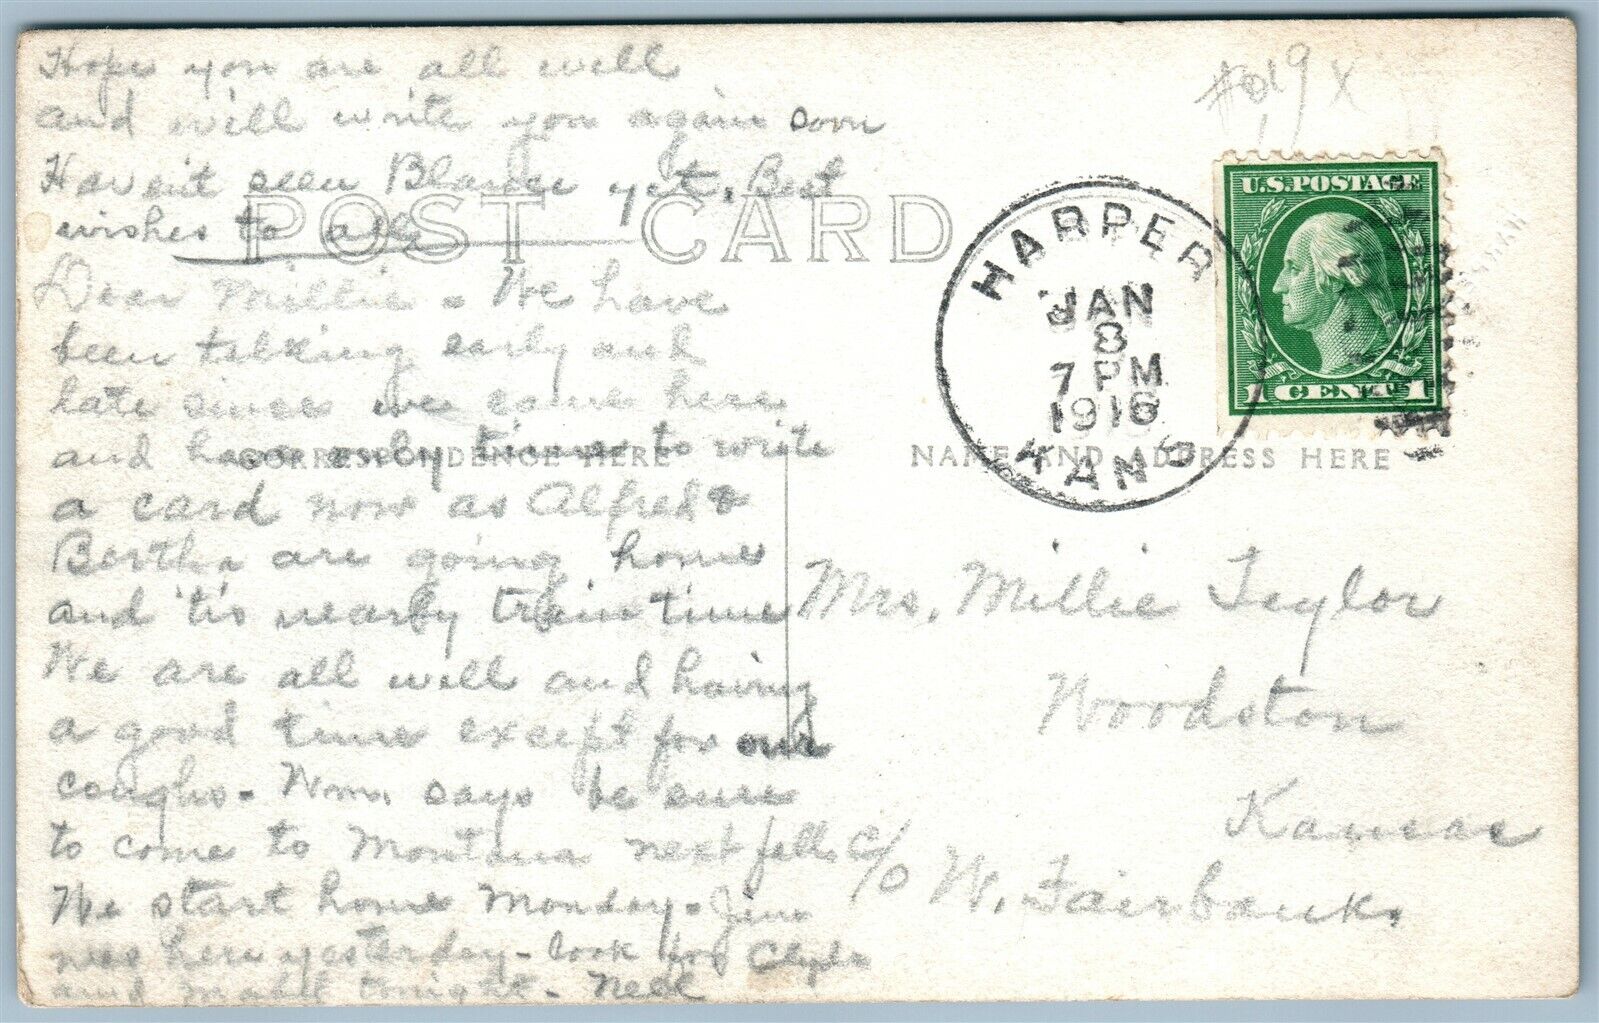 Hope you are all well
and will write you again soon
Haven't seen Blanche yet. Best
wishes to all
POST CARD
Dear Millie - We have
been talking early and
late since we came here
and have only time to write
a card now as Alfred &
Bertha are going home
and 'tis nearby train time
We are all well and having
a good time except for our
coughs - Wm. says be sure
to come to Montana next fall.
We start home Monday - Jim
was here yesterday - look for Clyde
and Mabel tonight - Nell
CORRESPONDENCE HERE
NAME AND ADDRESS HERE
U.S. POSTAGE
1 CENT 1
HARPER
JAN
8
7 PM
1916
KANS
Mrs. Millie Teylor
Woodston
Kansas
c/o W. Fairbanks